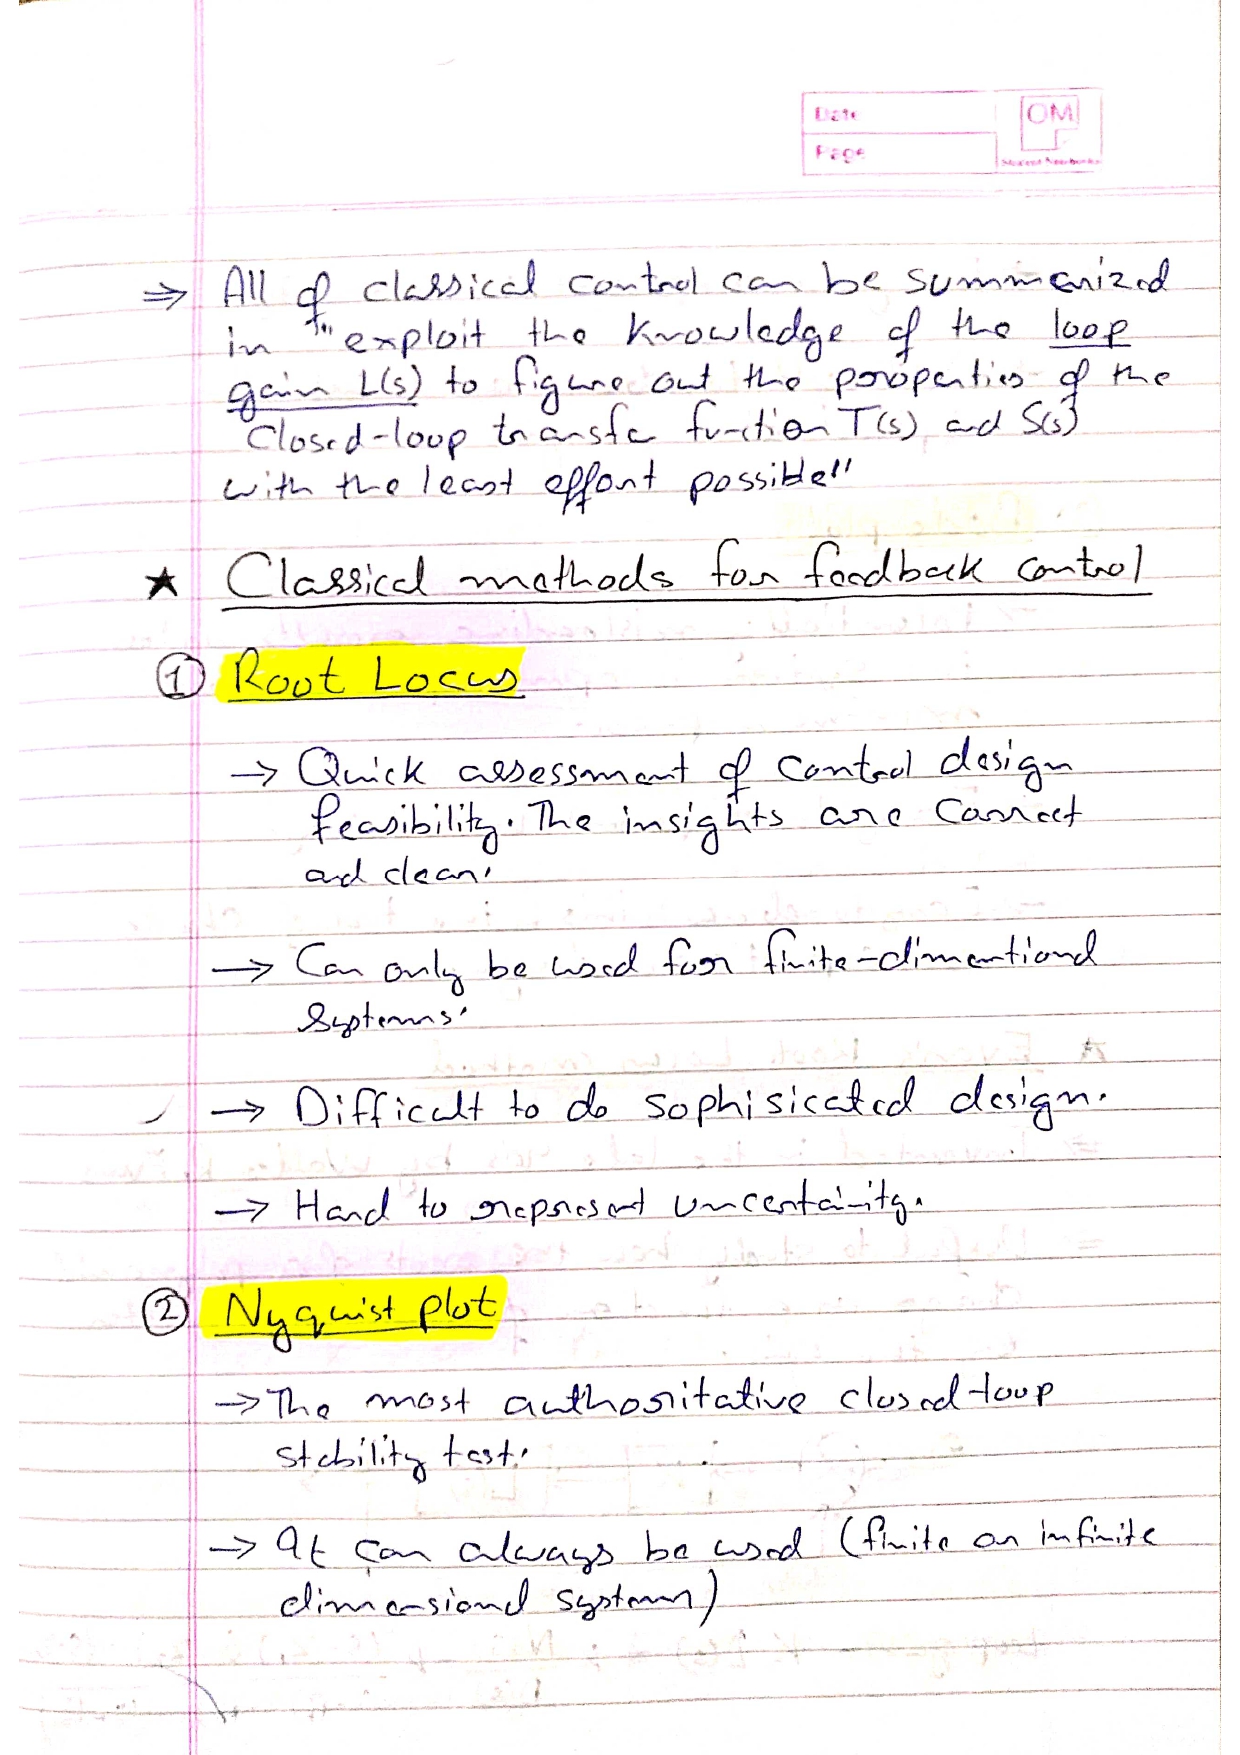 Date
OM
Page
Student Notebooks
⇒ All of classical control can be summarized
in "exploit the knowledge of the loop
gain L(s) to figure out the properties of the
closed-loop transfer function T(s) and S(s)
with the least effort possible"
★ Classical methods for feedback control
① Root Locus
→ Quick assessment of control design
feasibility. The insights are correct
and clear.
→ Can only be used for finite-dimentional
systems.
→ Difficult to do sophisicated design.
→ Hard to represent uncertainity.
② Nyquist plot
→ The most authoritative closed-loop
stability test.
→ It can always be used (finite or infinite
dimensional system)